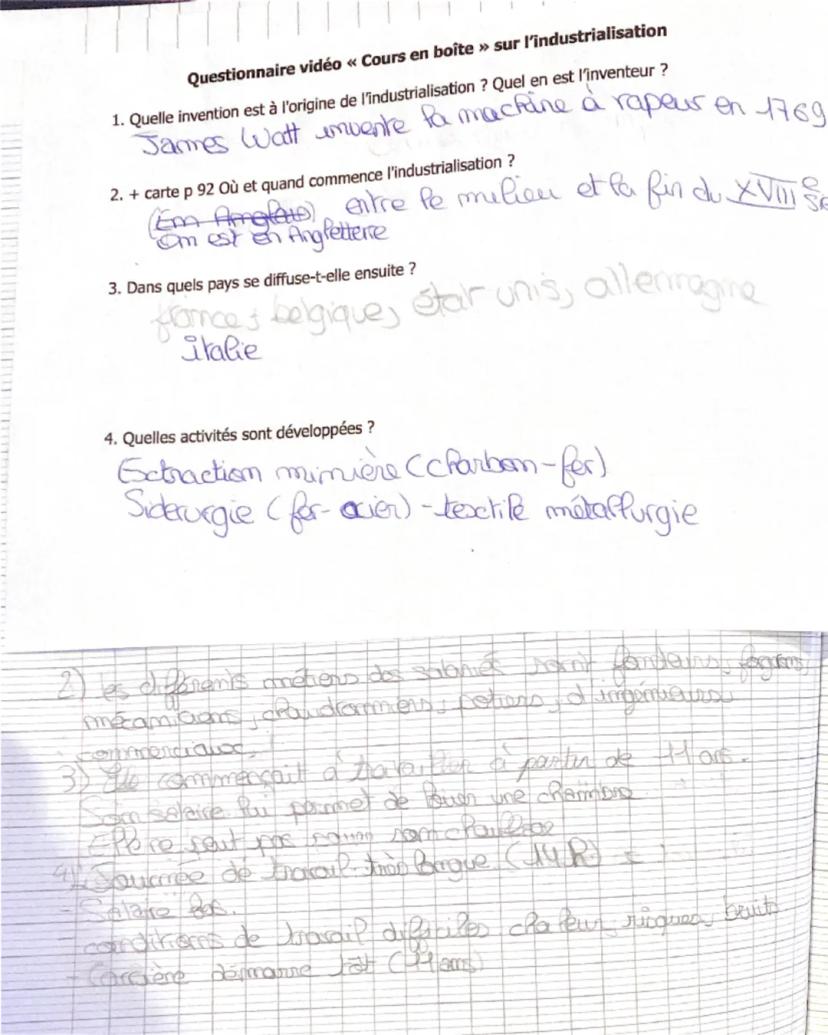 Questionnaire vidéo « Cours en boîte » sur l'industrialisation
1. Quelle invention est à l'origine de l'industrialisation ? Quel en est l'inventeur ?
James Watt invente la machine à rapeur en 1769
2. + carte p 92 Où et quand commence l'industrialisation ?
entre le milieu et la fin du XVIII e
On est en Angletterre
3. Dans quels pays se diffuse-t-elle ensuite ?
france, belgique, état unis, allemagne
italie
4. Quelles activités sont développées ?
Extraction minière (charbon-fer)
Siderurgie (fer-acier) - textile métallurgie
2) les différents métiers des salariés sont fondeurs, forgerons,
mécaniciens, chaudronniers, potiers, d'ingénieurs
commerciaux.
3) commençait à travailler à partir de 11 ans.
Son salaire lui permet de louer une chambre
Elle ne peut pas
4) Journée de travail très longue (14R)
- Salaire bas.
- conditions de travail difficiles chaleur, risques, bruits
- Carrière démarre tôt (11 ans)